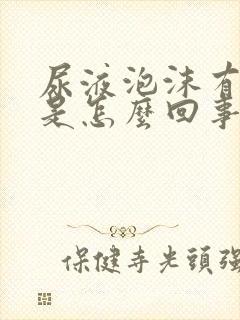 尿液泡沫有
是怎麼回事
保健寺光頭強